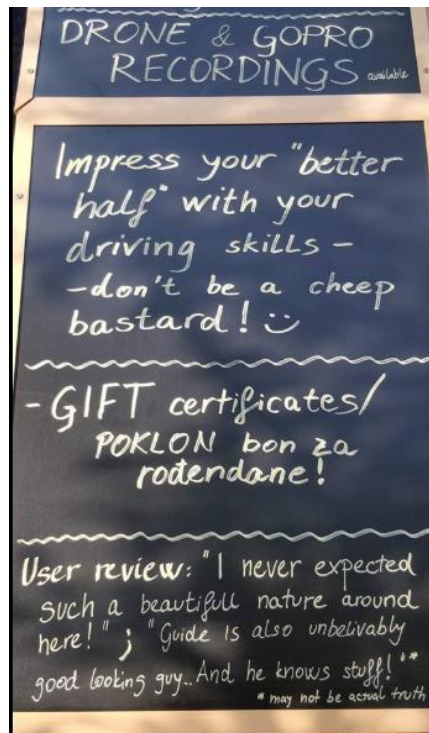 DRONE & GOPRO
RECORDINGS available
Impress your "better
half" with your
driving skills -
-don't be a cheep
bastard! :)
- GIFT certificates/
POKLON bon za
rođendane!
User review: "I never expected
such a beautifull nature around
here!" ; "Guide is also unbelivably
good looking guy.. And he knows stuff!"*
* may not be actual truth